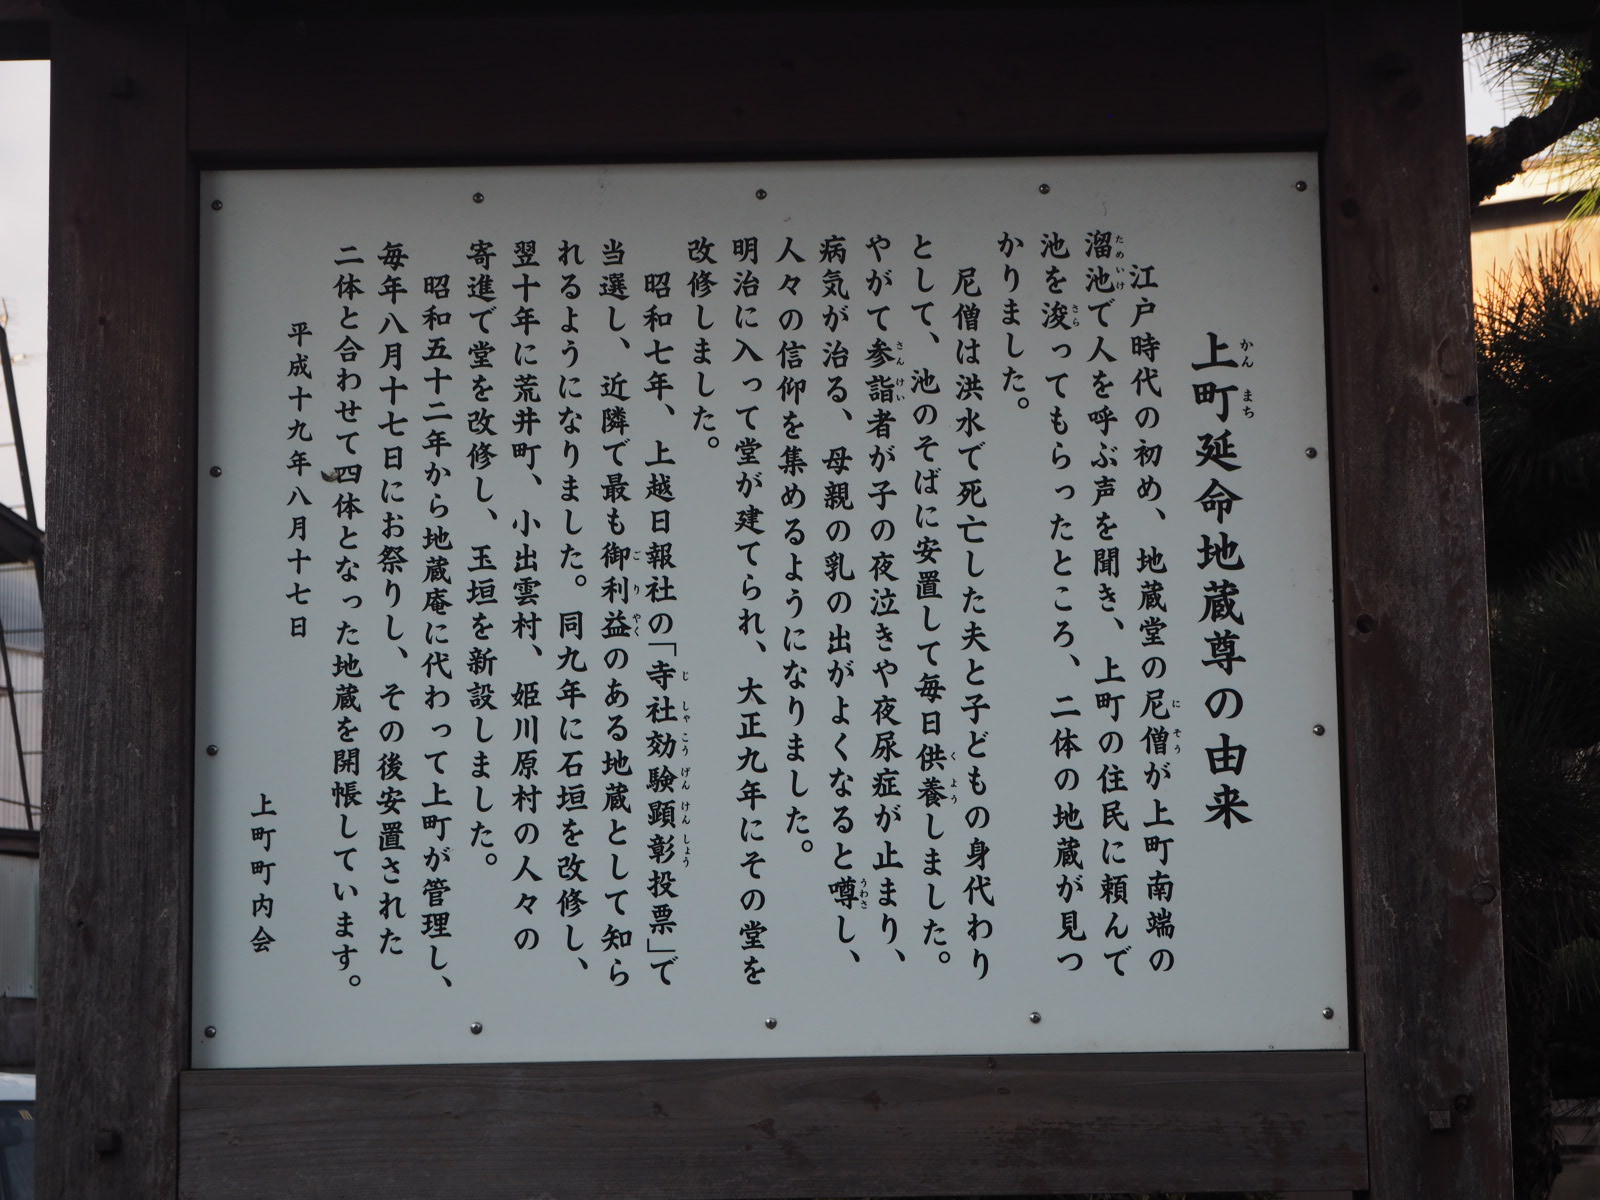 上町延命地蔵尊の由来
江戸時代の初め、地蔵堂の尼僧が上町南端の
溜池で人を呼ぶ声を聞き、上町の住民に頼んで
池を浚ってもらったところ、二体の地蔵が見つ
かりました。
尼僧は洪水で死亡した夫と子どもの身代わり
として、池のそばに安置して毎日供養しました。
やがて参詣者が子の夜泣きや夜尿症が止まり、
病気が治る、母親の乳の出がよくなると噂し、
人々の信仰を集めるようになりました。
明治に入って堂が建てられ、大正九年にその堂を
改修しました。
昭和七年、上越日報社の「寺社効験顕彰投票」で
当選し、近隣で最も御利益のある地蔵として知ら
れるようになりました。同九年に石垣を改修し、
翌十年に荒井町、小出雲村、姫川原村の人々の
寄進で堂を改修し、玉垣を新設しました。
昭和五十二年から地蔵庵に代わって上町が管理し、
毎年八月十七日にお祭りし、その後安置された
二体と合わせて四体となった地蔵を開帳しています。
平成十九年八月十七日
上町町内会